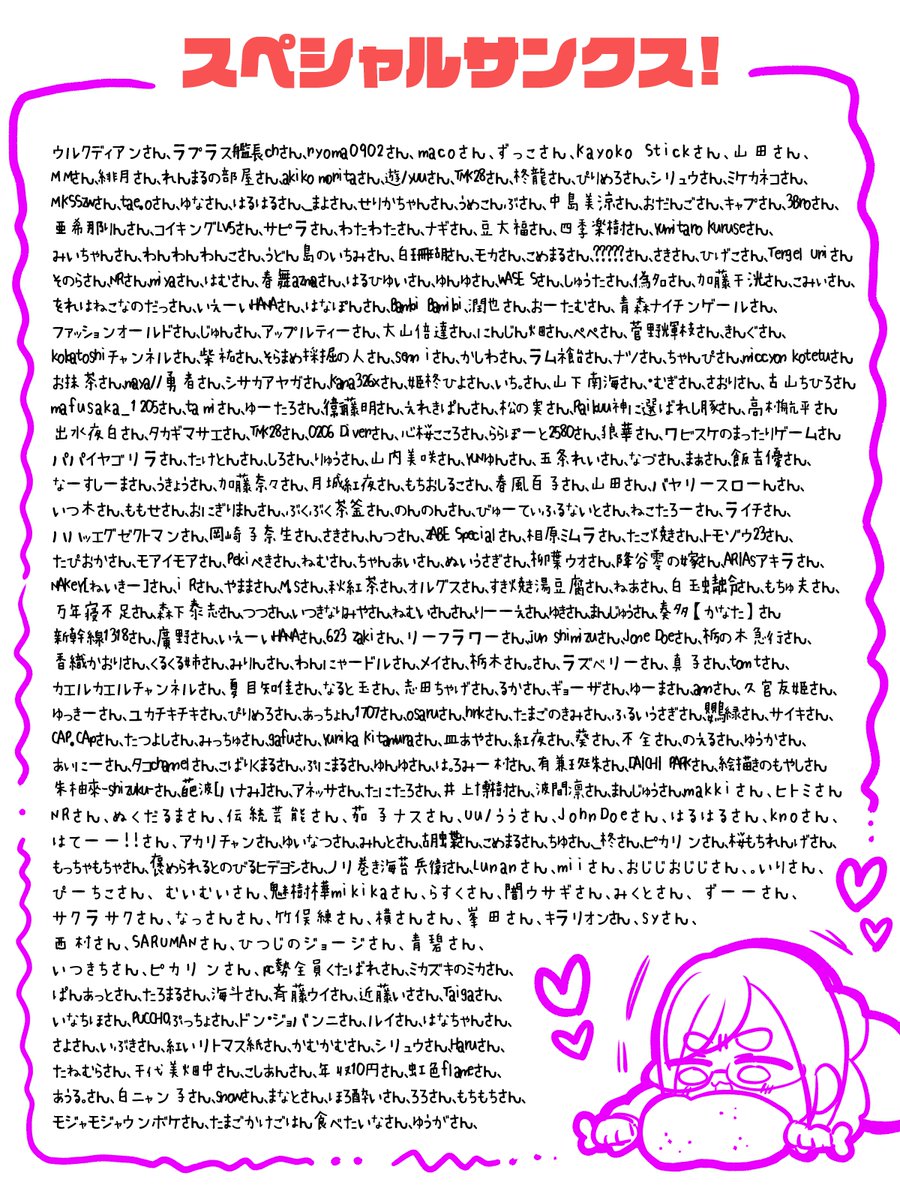 スペシャルサンクス!
ウルクディアンさん、ラプラス艦長chさん、ryoma0902さん、macoさん、ずっこさん、Kayoko Stickさん、山田さん、
MMさん、緋月さん、れんまるの部屋さん、akiko moritaさん、遊/yuuさん、TMK28さん、柊龍さん、ぴりめろさん、シリュウさん、ミケカネコさん、
MKSSzwさん、tae.oさん、ゆなさん、はるはるさん、_まよさん、せりかちゃんさん、うめこんぶさん、中島美涼さん、おだんごさん、キャプさん、38roさん、
亜希那りんさん、コイキングLV5さん、サピラさん、わたわたさん、ナギさん、豆大福さん、四季楽椅さん、yumitaro Kuruseさん、
みいちゃんさん、わんわんわんこさん、うどん島のいちみさん、白珊瑚さん、モカさん、こめまるさん、?????さん、さきさん、ひげこさん、Tergel Uniさん
そのらさん、NRさん、miyaさん、はむさん、春舞aznaさん、はるひゆいさん、ゆんゆさん、WASE Sさん、しゅうたさん、偽名さん、加藤千洸さん、こみいさん、
それはねこなのだっさん、いえーいHANAさん、はなぽんさん、Bambi Bambiさん、潤也さん、おーたむさん、青森ナイチンゲールさん、
ファッションオールドさん、じゅんさん、アップルティーさん、大山倍達さん、にんじん畑さん、ぺぺさん、菅野輝枝さん、きんぐさん、
kobatoshiチャンネルさん、柴祐さん、そらまめ採掘の人さん、semiさん、かしわさん、ラム飴さん、ナツさん、ちゃんぴさん、miccyon kotetuさん
お抹茶さん、maya//勇者さん、シサカアヤガさん、Kana326xさん、姫柊ひよさん、いちさん、山下南海さん、・むぎさん、さおりさん、古山ちひろさん
mafusaka_1205さん、tamiさん、ゆーたろさん、衛藤明さん、えれきぱんさん、松の実さん、Raikuu神に選ばれし豚さん、高木侑元平さん
出水夜白さん、タカギマサエさん、TMK28さん、0206 Diverさん、心桜こころさん、ららぽーと2580さん、狼華さん、ワビスケのまったりゲームさん
パパイヤゴリラさん、たけとんさん、しろさん、りゅうさん、山内美咲さん、yunゆんさん、五条れいさん、なづさん、まぁさん、飯吉優さん、
なーすしーまさん、うきょうさん、加藤奈々さん、月城紅夜さん、もちおしるこさん、春風百子さん、山田さん、バヤリースローんさん、
いつ木さん、ももせさん、おにぎりまんさん、ぶくぶく茶釜さん、のんのんさん、びゅーてぃふるないとさん、ねこたろーさん、ライチさん、
ハハッエグゼクトマンさん、岡崎子奈生さん、さきさん、んつさん、ZABE Specialさん、相原ミムラさん、たこ焼きさん、トモゾウ23さん、
たぴおかさん、モアイモアさん、Pekiぺきさん、ねむさん、ちゃんあいさん、ぬいうさぎさん、柳葉ウオさん、降谷零の嫁さん、ARIASアキラさん、
NAKeY[ねいきー]さん、iRさん、やままさん、M.Sさん、秋紅茶さん、オルグスさん、すき焼き湯豆腐さん、ねあさん、白玉融合さん、もちゅ夫さん、
万年寝不足さん、森下泰志さん、つつさん、いつきなりはやさん、ねむいさんさん、りーーえさん、ゆきさん、まんじゅうさん、奏多【かなた】さん
新幹線1318さん、廣野さん、いえーいHANAさん、623 Zakiさん、リーフラワーさん、jun shimizuさん、Jone Doeさん、栃の木急行さん、
香織かおりさん、くるくる姉さん、みりんさん、わんにゃードルさん、メイさん、栃木さん。さん、ラズベリーさん、真子さん、tomtさん、
カエルカエルチャンネルさん、夏目知佳さん、なると玉さん、志田ちゃげさん、るかさん、ギョーザさん、ゆーまさん、amさん、久官友姫さん、
ゆっきーさん、ユカチキチキさん、ぴりめろさん、あっちょん1707さん、osaruさん、hnkさん、たまごのきみさん、ふるいうさぎさん、鸚緑さん、サイキさん、
CAP.CApさん、たつよしさん、みっちゅさん、gafuさん、yurika Kitamuraさん、皿あやさん、紅夜さん、葵さん、不全さん、のえるさん、ゆうかさん、
あいにーさん、タコchamelさん、こばりくまるさん、ぷにまるさん、ゆんゆさん、は。ろみー村さん、有兼珠さん、DAICHI PARKさん、絵描きのもやしさん
朱柚來-shizuku-さん、葩波[ハナみ]さん、アネッサさん、たにたろさん、井上博樹さん、波間凛さん、まんじゅうさん、makkiさん、ヒトミさん
NRさん、ぬくだるまさん、伝統芸能さん、茄子ナスさん、uu/ううさん、JohnDoeさん、はるはるさん、knoさん、
はてーー!!さん、アカリチャンさん、ゆいなつさん、みんとさん、さん、こめまるさん、ちゆさん、_柊さん、ピカリンさん、桜もちれんげさん、
もっちゃもちゃさん、褒められるとのびるヒデヨシさん、ノリ巻き海苔兵衛さん、Lunanさん、miiさん、おじじおじじさん、。いりさん、
ぴーちこさん、むいむいさん、魅樹林華mikikaさん、らすくさん、闇ウサギさん、みくとさん、ずーーさん、
サクラサクさん、なっさんさん、竹俣練さん、横さんさん、峯田さん、キラリオンさん、syさん、
西村さん、SARUMANさん、ひつじのジョージさん、青碧さん、
いつきちさん、ピカリンさん、PC勢全員くたばれさん、ミカズキのミカさん、
ぱんあっとさん、たろまるさん、海斗さん、斉藤ウイさん、近藤いささん、Taigaさん、
いなちほさん、PUCCHO.ぷっちょさん、ドン・ジョバンニさん、ルイさん、はなちゃんさん、
さよさん、いぶきさん、紅いリトマス紙さん、かむかむさん、シリュウさん、Haruさん、
たねむらさん、千代美畑中さん、こしあんさん、年収10円さん、虹色flameさん、
あうる。さん、白ニャン子さん、snowさん、まなとさん、ほろ酔いさん、ろろさん、もちもちさん、
モジャモジャウンボケさん、たまごかけごはん食べたいなさん、ゆうがさん、